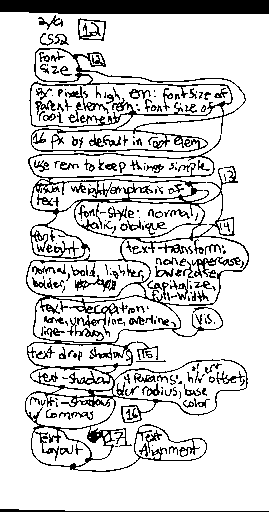 2/9 12
CSS2
font size 12
px: pixels high, em: font size of
parent elem, rem: font size of
root element
16 px by default in root elem
use rem to keep things simple
visual weight/emphasis of 13
text
font-style: normal,
italic, oblique 14
font-weight
text-transform:
none, uppercase,
lowercase,
capitalize,
full-width
normal, bold, lighter,
bolder,
text-decoration:
none, underline, overline,
line-through
vis.
text drop shadows 15
text-shadow
4 params: h/v offset,
blur radius, base
color
multi-shadows
w/ commas 16
Text
Layout 17
Text
Alignment